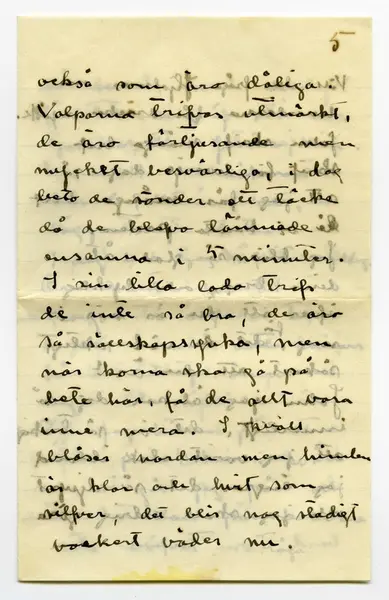 5
också som äro dåliga.
Valparna trifvas utmärkt,
de äro förtjusande men
mycket besvärliga, i dag
beto de sönder ett täcke
då de blefvo lämnade
ensamma i 5 minuter.
I sin lilla lada trifs
de inte så bra, de äro
så sällskapssjuka, men
när korna ska gå på
bete här, få de allt vara
inne mera. I kväll
blåser nordan men himlen
är klar och hvit som
silfver, det blir nog stadigt
vackert väder nu.